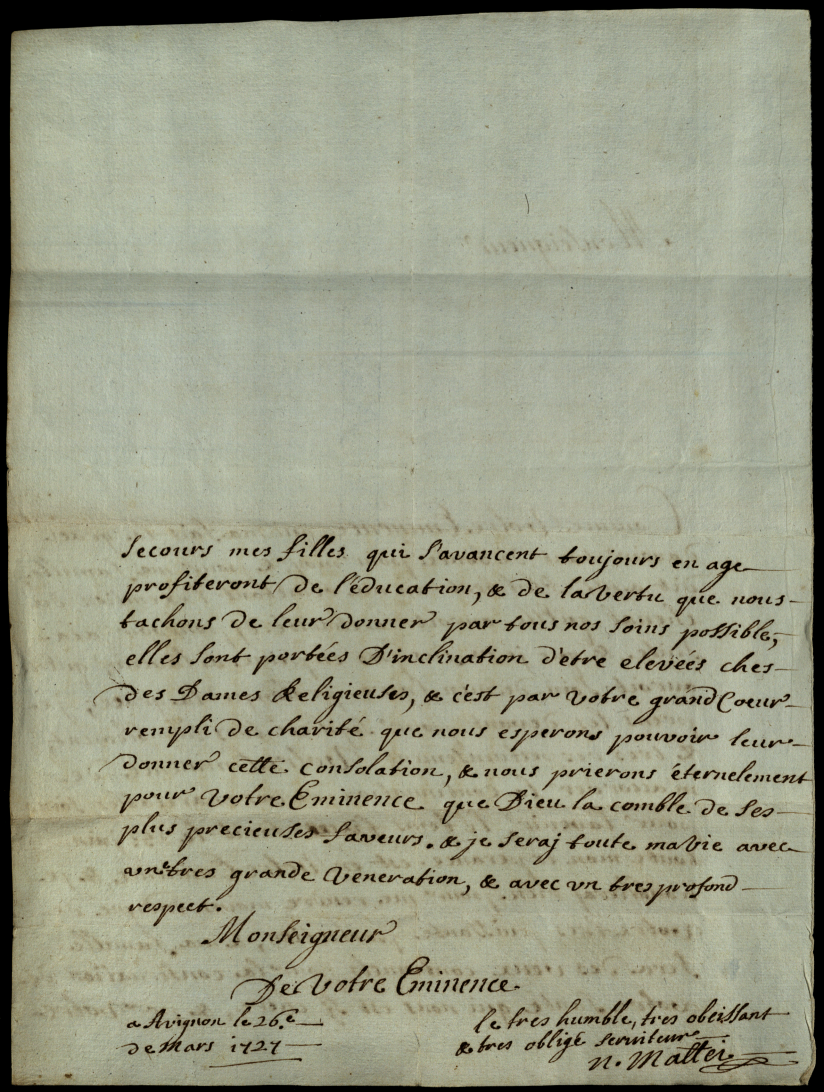 secours mes filles qui s'avancent toujours en age
profiteront de l'éducation, & de la vertu que nous
tachons de leur donner par tous nos soins possible,
elles sont portées d'inclination d'etre elevées ches
des Dames Religieuses, & c'est par votre grand Coeur
rempli de charité que nous esperons pouvoir leur
donner cette consolation, & nous prierons éternelement
pour Votre Eminence que Dieu la comble de ses
plus precieuses faveurs. & je seraj toute ma vie avec
vne tres grande veneration, & avec vn tres profond
respect.
Monseigneur
De Votre Eminence
a Avignon le 26.e
de Mars 1727
le tres humble, tres obeissant
& tres obligé serviteur
N. Mattei